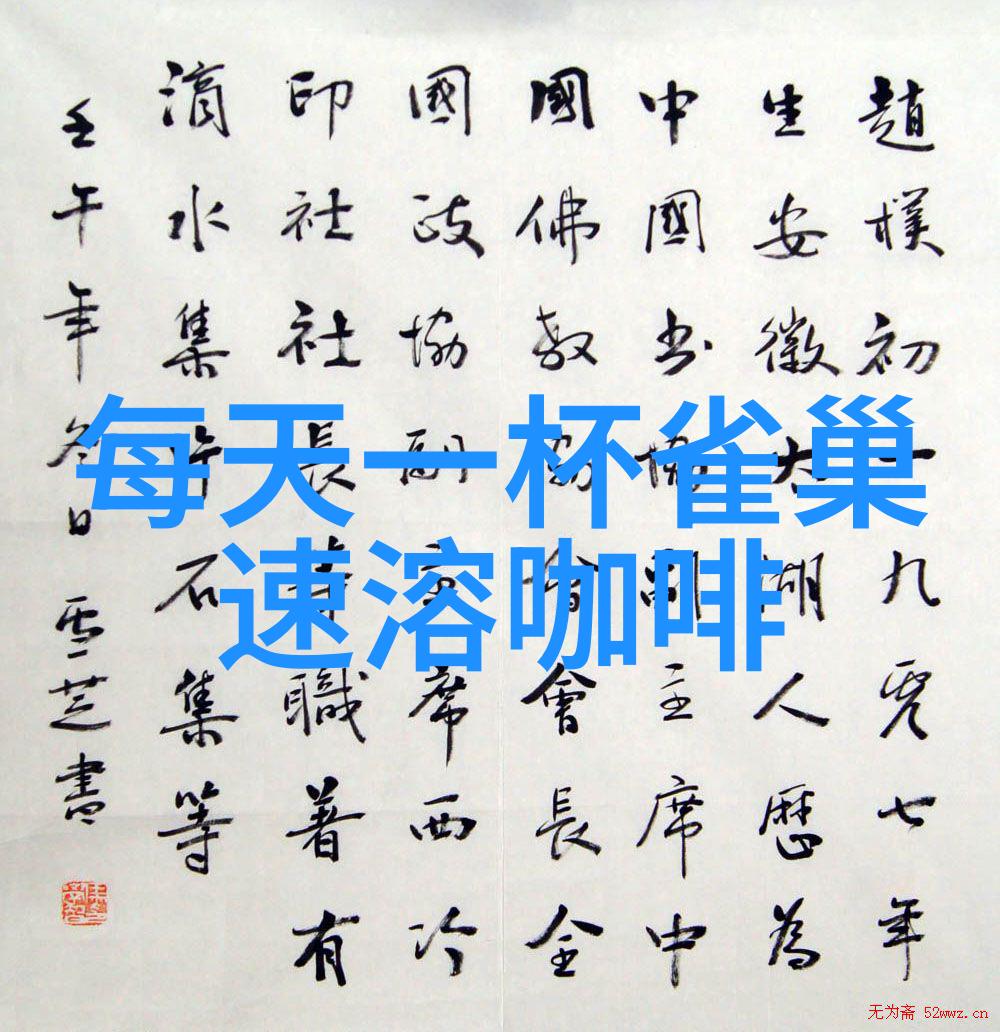 趙樸初一九零七年
生安徽太湖人歷為
中國书協副主席中
國佛教協會會長全
國政協副主席西泠
印社社長等職著有
滴水集片石集等
壬午年冬日雪芝書
每天一杯雀巢
速溶咖啡
无为斋 52wwz.cn